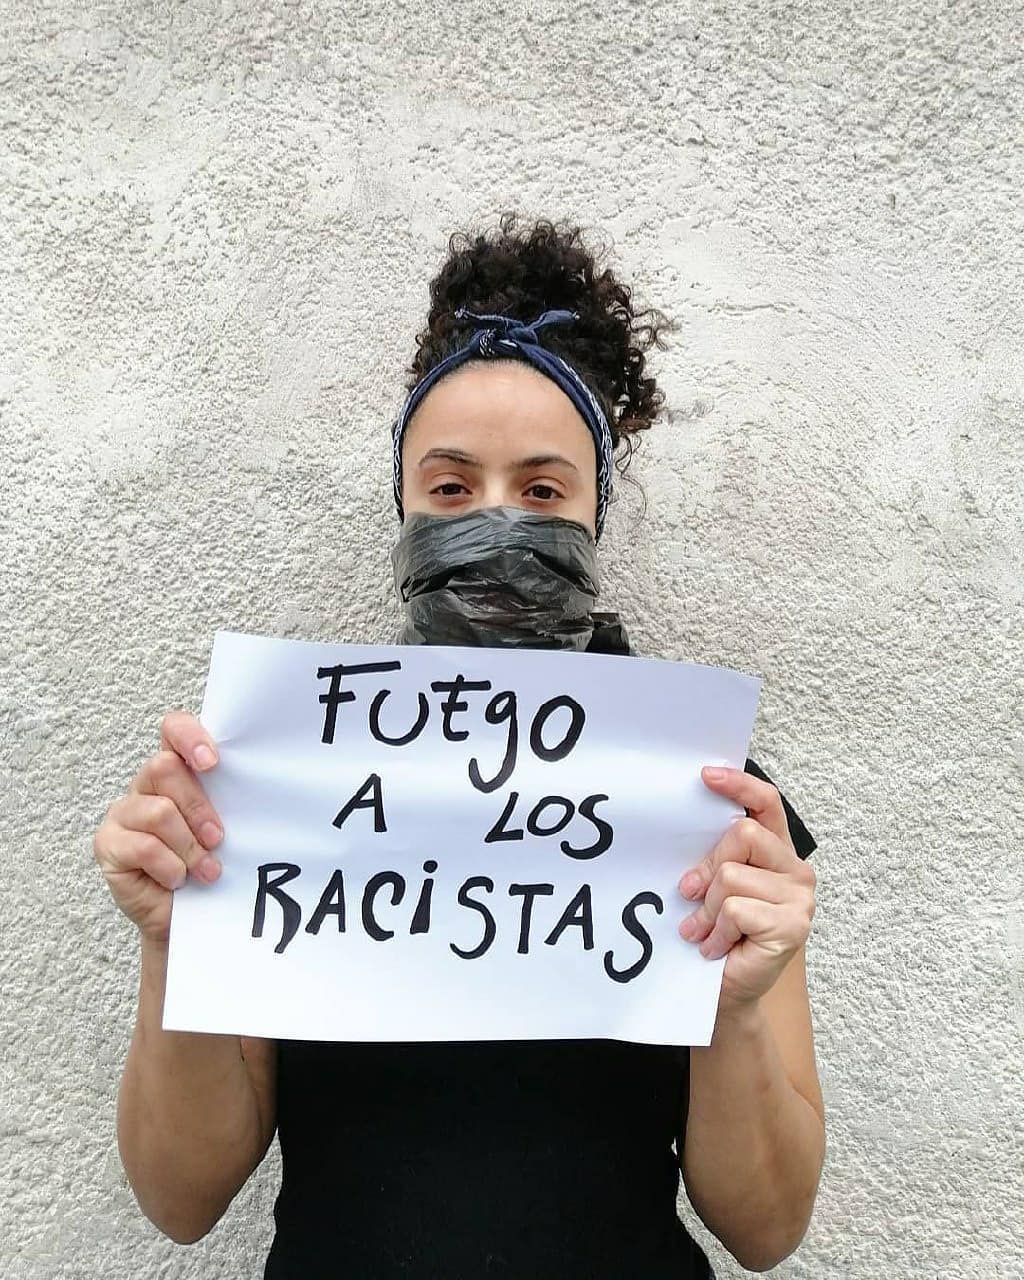 FUEgO
A LOS
RACiSTAS